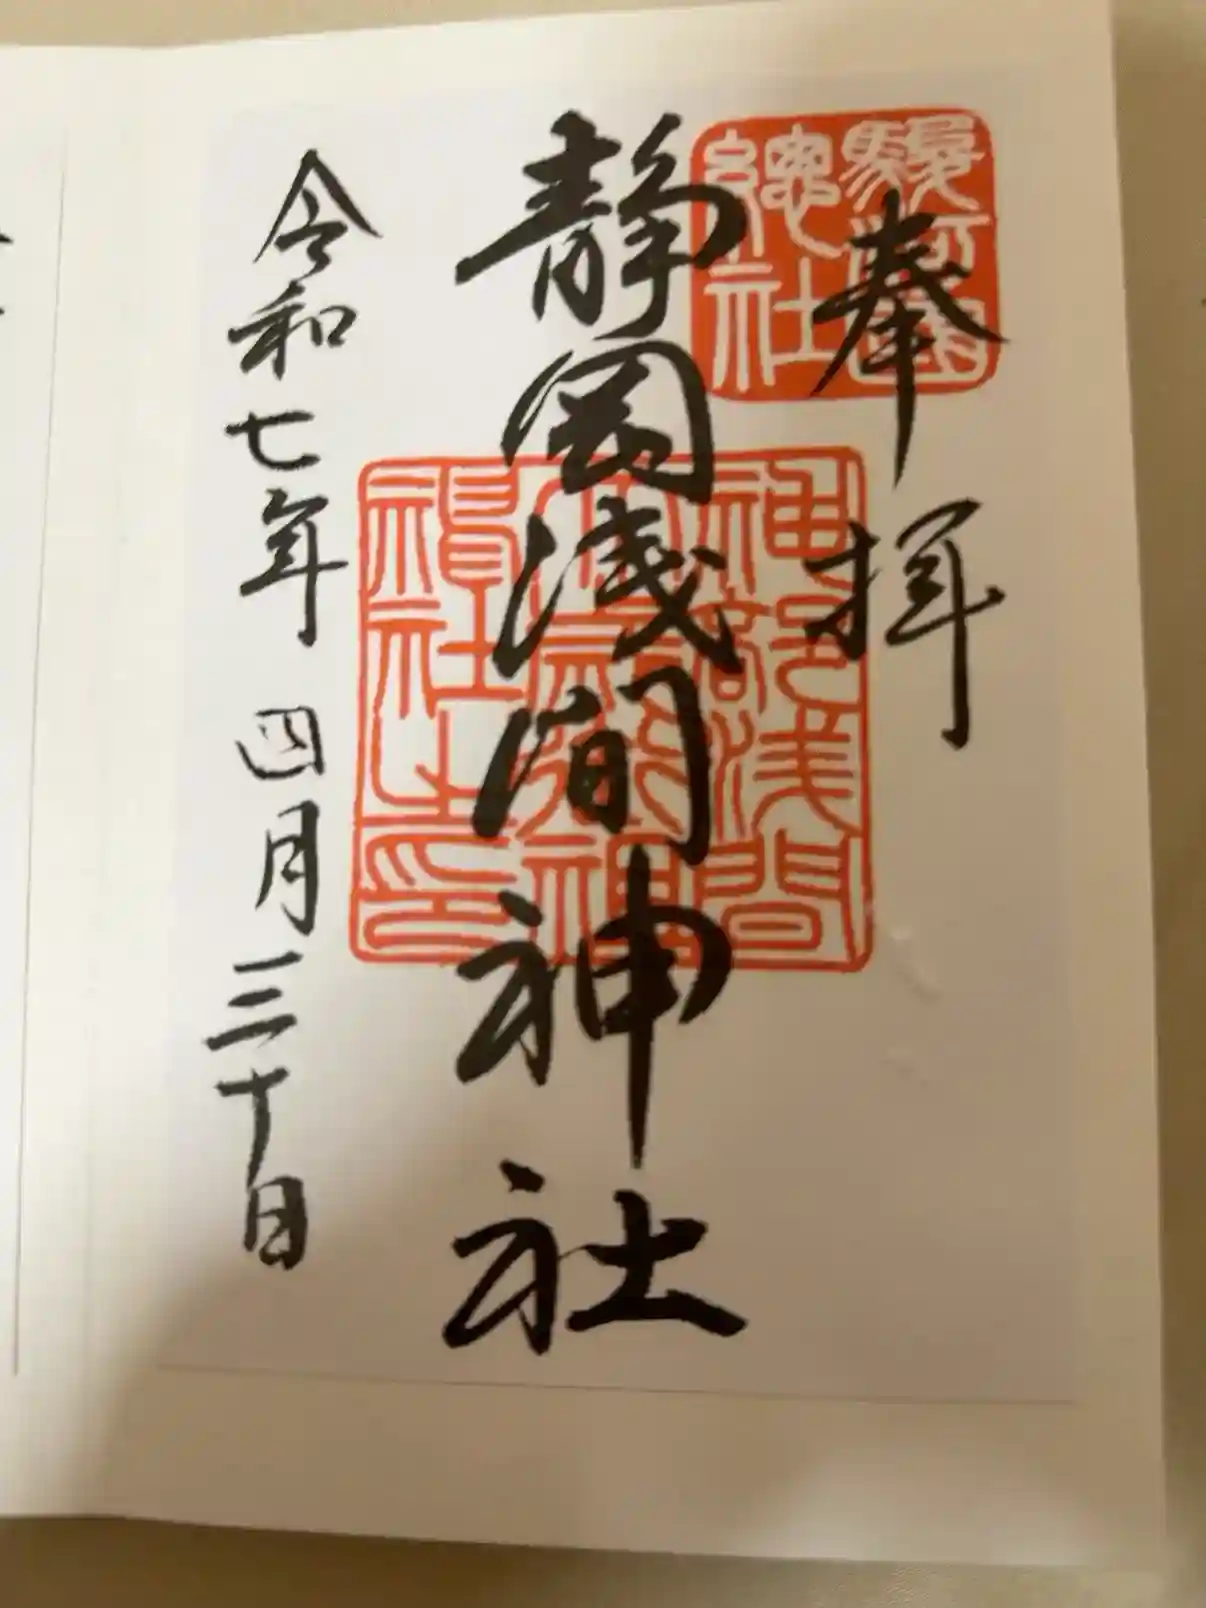 駿河國
總社
奉拝
神部浅間
静岡浅間神社
令和七年 四月三十日